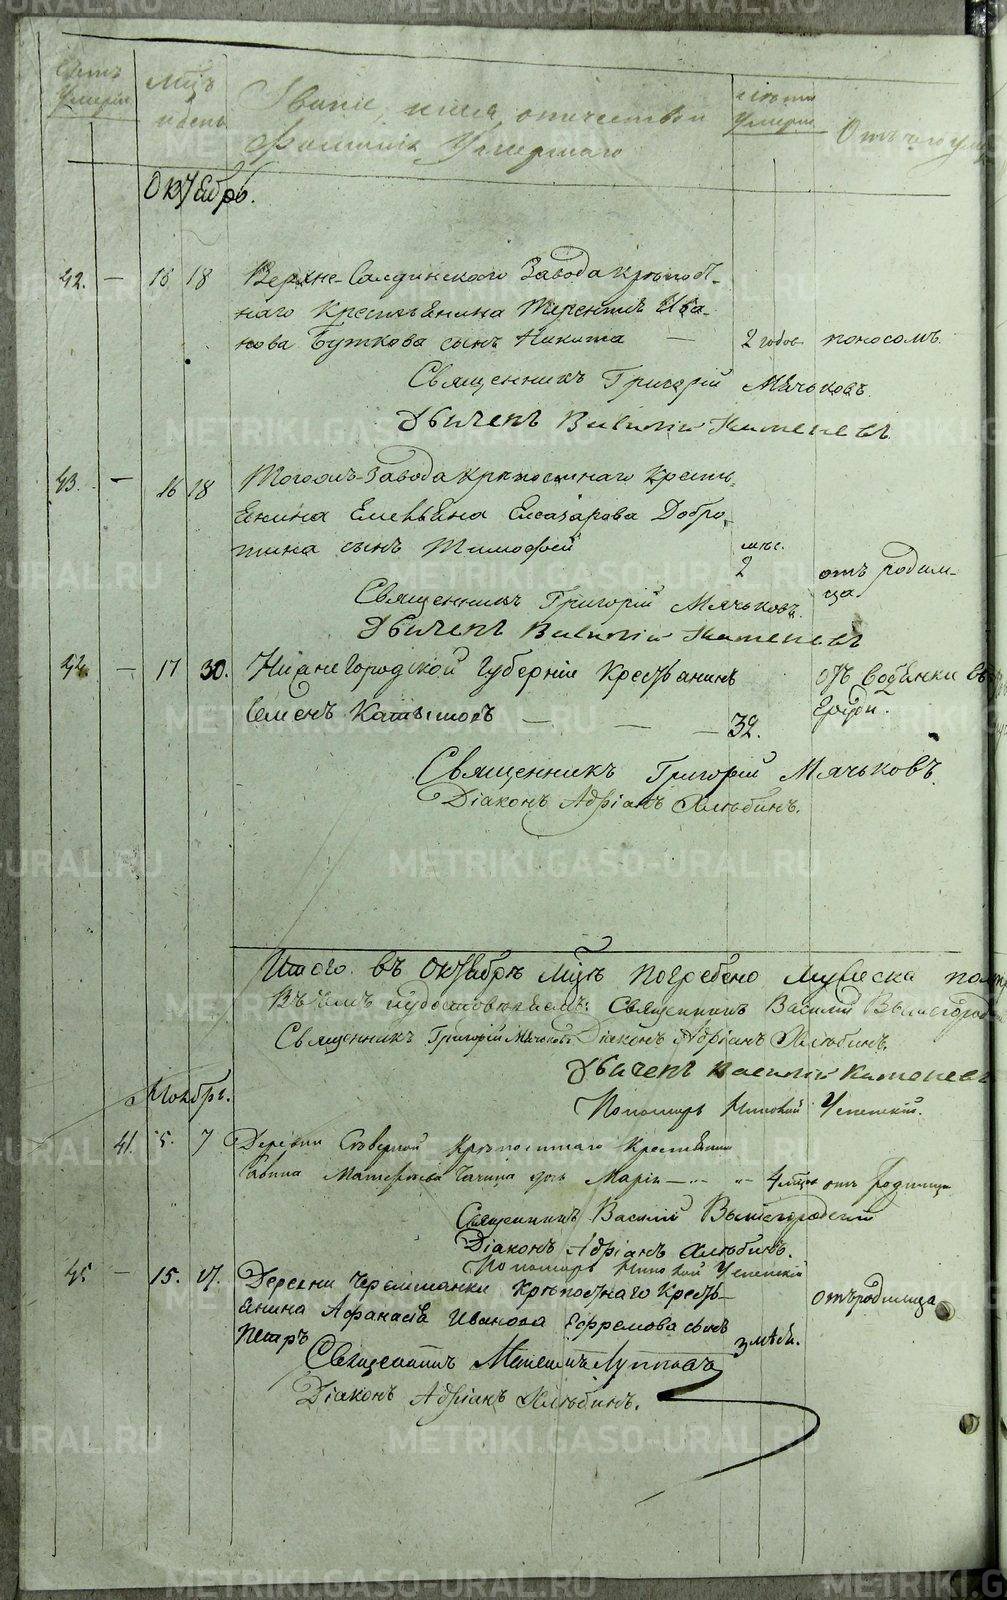 METRIKI.GASO-URAL.RU
Счетъ Умерш
Мцъ и день
Званіе, имя, отчество и
Фамилія Умершаго
лѣта Умерш
Отъ чего ум
Октябрь.
42. — 16 18 Верхне-Салдинского Завода крѣпост-
наго Крестьянина Терентія Ива-
нова Буткова сынъ Никита — 2 годов поносомъ.
Священникъ Григорій Мячьковъ.
Дьячекъ Василій Каменевъ.
43. — 16 18 Тогожъ-Завода крѣпостнаго Кресть-
янина Емельяна Елеазарова Добро-
тина сынъ Тимофей мѣс. 2 отъ родим-
ца
Священникъ Григорій Мячьковъ.
Дьячекъ Василій Каменевъ
— 17 30. Нижнегородской Губерніи Крестьянинъ отъ водянки въ
Семенъ — — — 32. груди.
Священникъ Григорій Мячьковъ.
Діаконъ Адріанъ Хлюбинъ.
Итого въ Октябрѣ Мцѣ погребено мужеска
Въ чемъ и удостовѣряемъ: Священникъ Василій Вышегород
Священникъ Григорій Мячьковъ Діаконъ Адріанъ Хлюбинъ.
Дьячекъ Василій Каменевъ
Пономарь Николай Успенскій.
Ноябрь.
5. 7 Деревни Сѣверной Крѣпостнаго Крестьянина
Савина дочь Марія — 4 мѣсяц отъ родимца
Священникъ Василій Вышегородскій
Діаконъ Адріанъ Хлюбинъ.
Пономарь Николай Успенскій
45 — 15. 17. Деревни Черемшанки Крѣпостнаго Кресть-
янина Афанасія Иванова Ефремова сынъ отъ родимца
Петръ 3 мѣся.
Священникъ
Діаконъ Адріанъ Хлюбинъ.